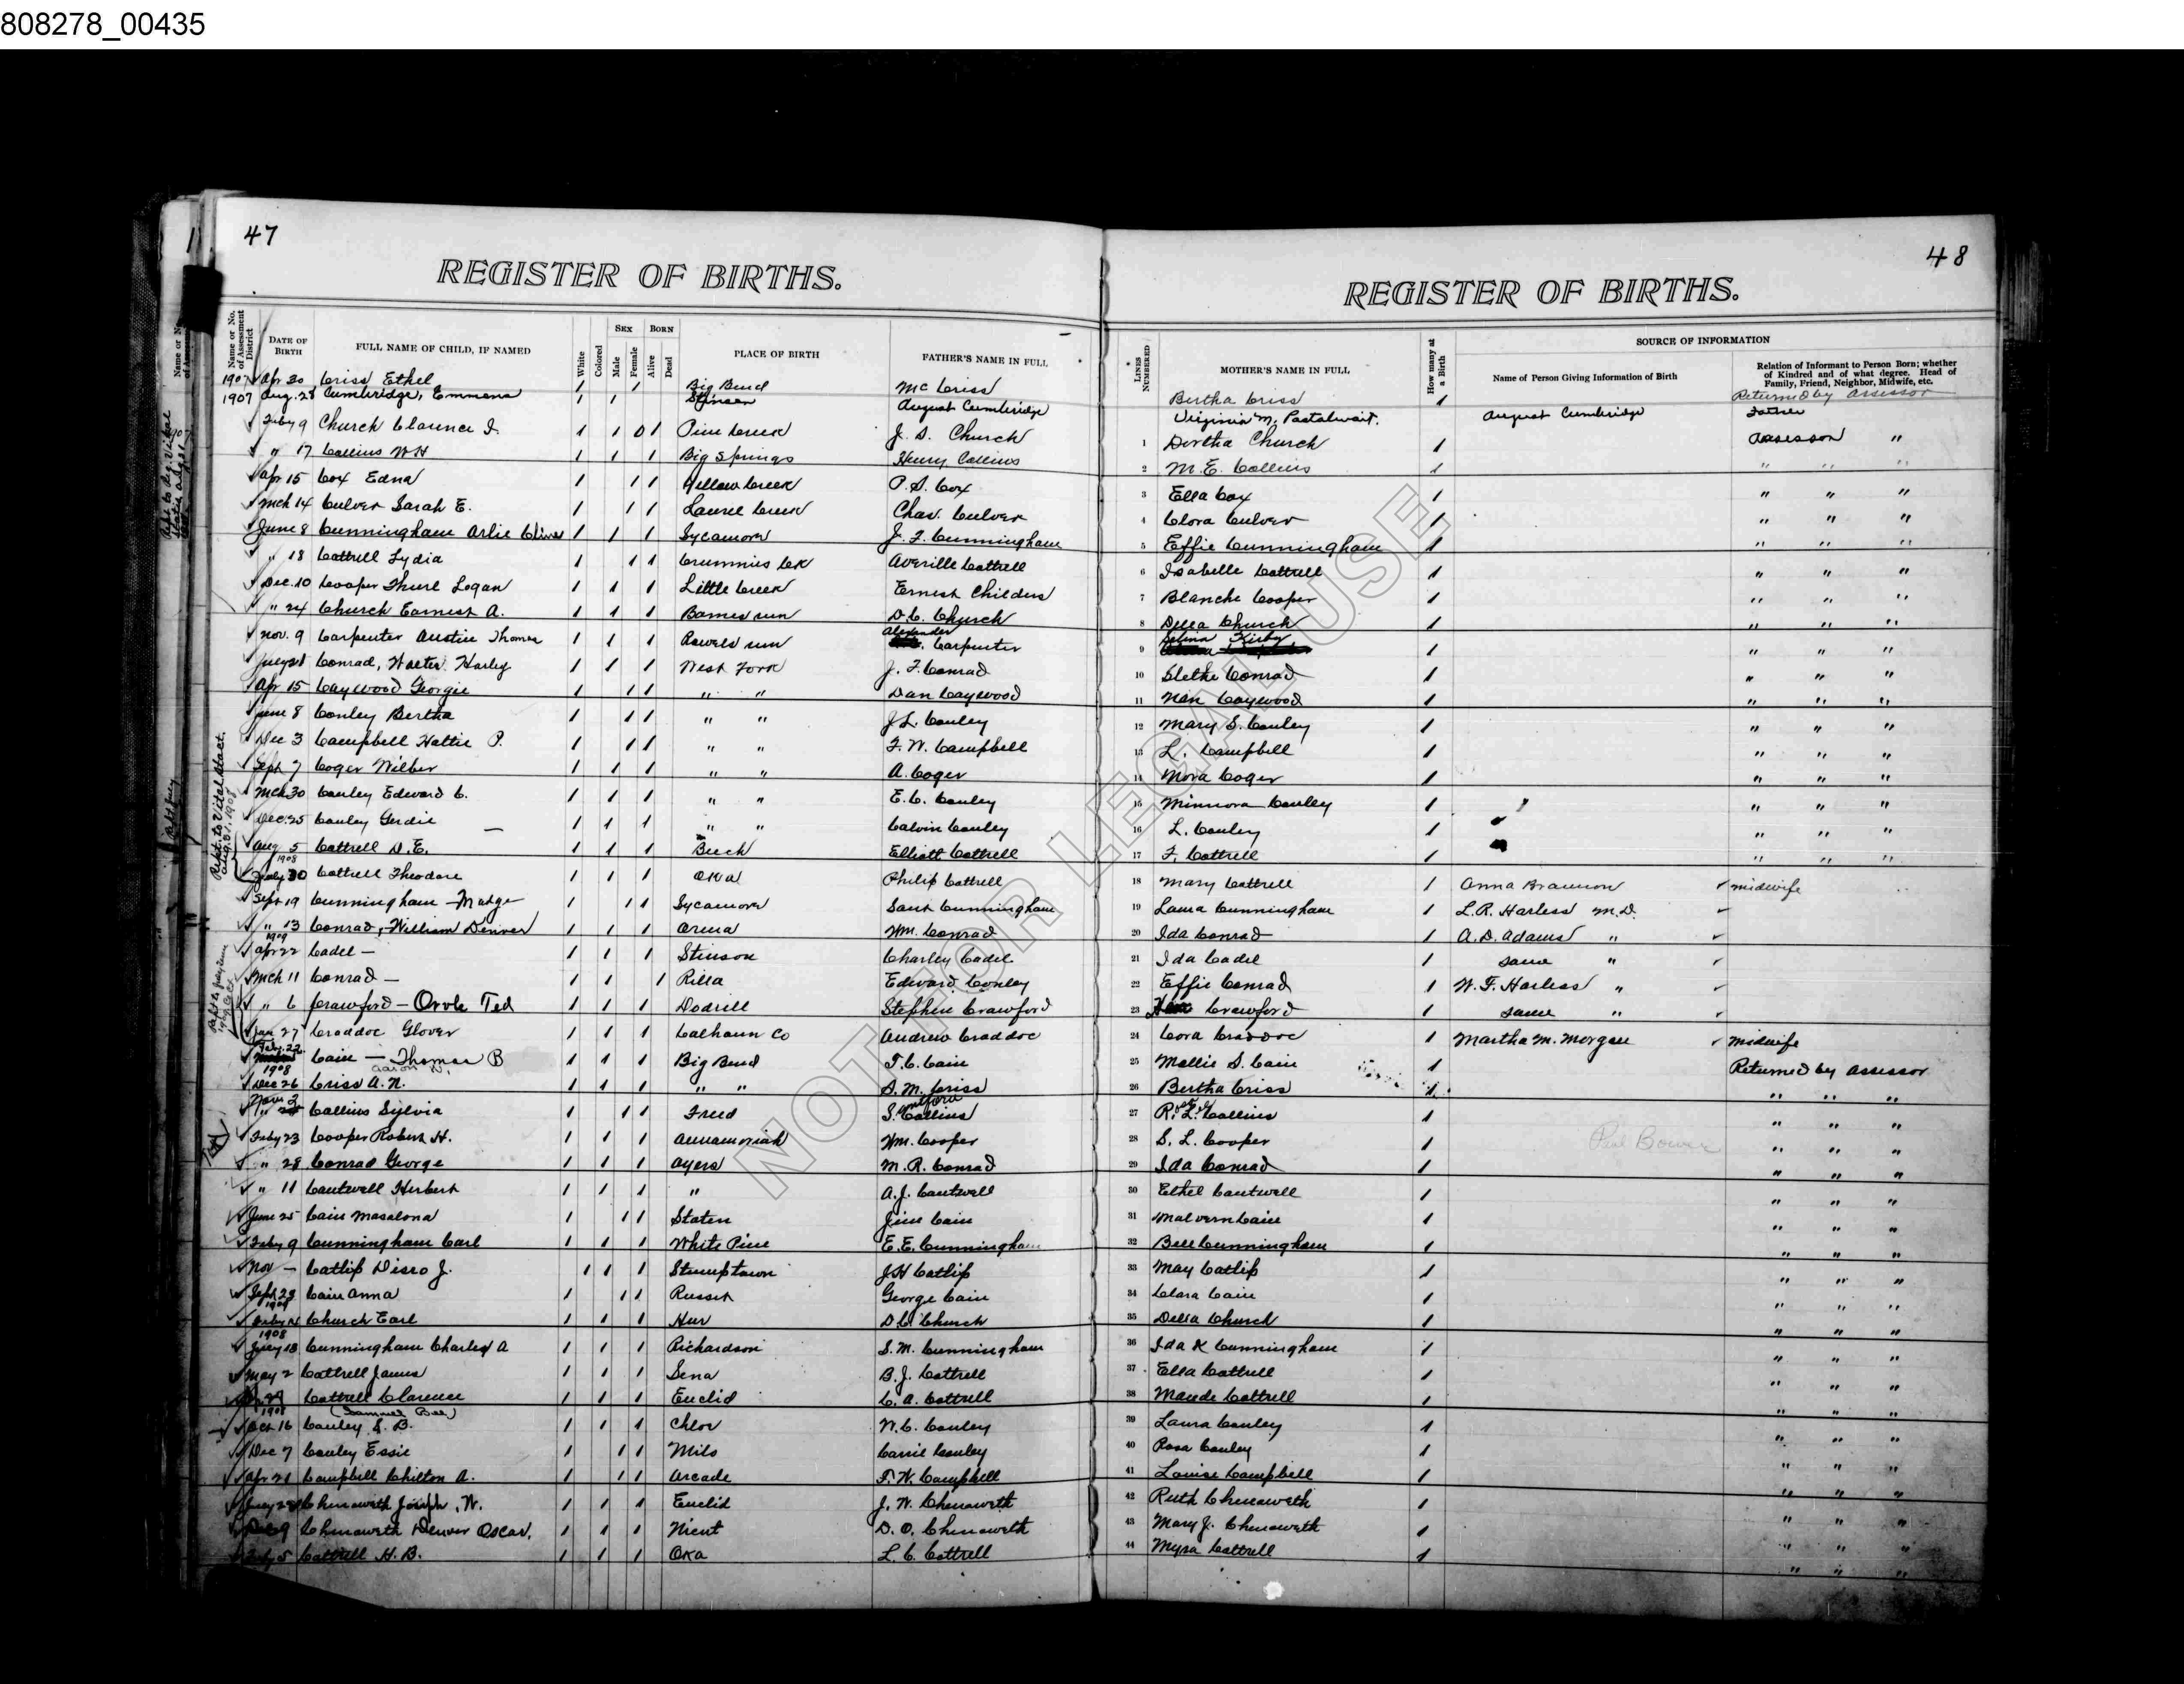 808278_00435
47
48
REGISTER OF BIRTHS.
REGISTER OF BIRTHS.
Name or No. of Assessment District
DATE OF BIRTH
FULL NAME OF CHILD, IF NAMED
White
Colored
SEX
Male
Female
BORN
Alive
Dead
PLACE OF BIRTH
FATHER'S NAME IN FULL
LINES NUMBERED
MOTHER'S NAME IN FULL
How many at a Birth
SOURCE OF INFORMATION
Name of Person Giving Information of Birth
Relation of Informant to Person Born; whether of Kindred and of what degree. Head of Family, Friend, Neighbor, Midwife, etc.
1907 Apr 20 Criss Ethel 1 1 Big Bend Mc Criss Bertha Criss 1 Returned by Assessor
1907 Aug. 28 Cumbridge, Emmena 1 1 Stinson August Cumbridge Virginia M. August Cumbridge Father
Feby 9 Church Clarence 1 1 0 1 Pine Creek J. S. Church 1 Dortha Church 1 Assessor "
" 17 Collins W H 1 1 1 Big Springs Henry Collins 2 M. E. Collins 1 " " "
Apr 15 Cox Edna 1 1 1 Yellow Creek P. S. Cox 3 Ella Cox 1 " " "
Mch 14 Culver Sarah E. 1 1 1 Laurel Creek Chas. Culver 4 Clora Culver 1 " " "
June 8 Cunningham Arlie 1 1 1 Sycamore J. F. Cunningham 5 Effie Cunningham 1 " " "
" 18 Cottrell Lydia 1 1 1 Crummies Ck Averille Cottrell 6 Isabelle Cottrell 1 " " "
Dec. 10 Cooper Thurl Logan 1 1 1 Little Creek Ernest Childers 7 Blanche Cooper 1 " " "
" 24 Church Earnest A. 1 1 1 Barnes run D. C. Church 8 Della Church 1 " " "
Nov. 9 Carpenter Austin Thomas 1 1 1 Rowels run Alexander Carpenter 9 Selma Kirby 1 " " "
July 28 Conrad, Walter Harley 1 1 1 West Fork J. F. Conrad 10 Slethe Conrad 1 " " "
Apr 15 Caywood Georgie 1 1 1 " " Dan Caywood 11 Nan Caywood 1 " " "
June 8 Conley Bertha 1 1 1 " " J L. Conley 12 Mary S. Conley 1 " " "
Dec 3 Campbell Hattie P. 1 1 1 " " F. W. Campbell 13 L. Campbell 1 " " "
Sept 7 Coger Wilber 1 1 1 " " A. Coger 14 Mora Coger 1 " " "
Mch 30 Conley Edward C. 1 1 1 " " E. C. Conley 15 Minnora Conley 1 " " "
Dec. 25 Conley Gerdie 1 1 1 " " Calvin Conley 16 L. Conley 1 " " "
Aug 5 Cottrell D. E. 1 1 1 Beech Elliott Cottrell 17 F. Cottrell 1 " " "
1908
July 30 Cottrell Theodore 1 1 1 Oka Philip Cottrell 18 Mary Cottrell 1 Anna Brannon midwife
Sept 19 Cunningham - Madge 1 1 1 Sycamore Cunningham 19 Laura Cunningham 1 L. R. Harless M. D.
" 13 Conrad, William Denver 1 1 1 Orma Wm. Conrad 20 Ida Conrad 1 A. D. Adams "
1909
Apr 22 Cadel - 1 1 1 Stinson Charley Cadel 21 Ida Cadel 1 same "
Mch 11 Conrad - 1 1 1 Rilla Edward Conley 22 Effie Conrad 1 W. F. Harless "
" 6 Crawford - Orvle Ted 1 1 1 Dodrill Stephen Crawford 23 Crawford 1 same "
Jan 27 Craddoc Glover 1 1 1 Calhoun Co Andrew Craddoc 24 Cora Craddoc 1 Martha M. Morgan midwife
Feb. 22 Cain - Thomas B 1 1 1 Big Bend T. C. Cain 25 Mollie S. Cain 1 Returned by Assessor
Aaron N.
1908
Dec 26 Criss A. N. 1 1 1 " " S. M. Criss 26 Bertha Criss 1 " " "
Nov. 3 Collins Sylvia 1 1 1 Freed S. Collins 27 R. L. Collins 1 " " "
Feby 23 Cooper Robert H. 1 1 1 Annamoriah Wm. Cooper 28 S. L. Cooper 1 " " "
" 28 Conrad George 1 1 1 Ayers M. R. Conrad 29 Ida Conrad 1 " " "
" 11 Cantwell Herbert 1 1 1 " A. J. Cantwell 30 Ethel Cantwell 1 " " "
June 25 Cain Masalona 1 1 1 Staten Jim Cain 31 Malvern Cain 1 " " "
Feby 9 Cunningham Carl 1 1 1 White Pine E. E. Cunningham 32 Bell Cunningham 1 " " "
Nov - Catlip Disro J. 1 1 1 Stumptown J H Catlip 33 May Catlip 1 " " "
Sept 23 Cain Anna 1 1 1 Russet George Cain 34 Clara Cain 1 " " "
1909
Feby Church Earl 1 1 1 Hur D. C. Church 35 Della Church 1 " " "
1908
July 18 Cunningham Charles A 1 1 1 Richardson S. M. Cunningham 36 Ida K Cunningham 1 " " "
May 2 Cottrell James 1 1 1 Sena B. J. Cottrell 37 Ella Cottrell 1 " " "
Cottrell Clarence 1 1 1 Euclid C. A. Cottrell 38 Maude Cottrell 1 " " "
1908 (Sammuel Bee)
Oct 16 Conley S. B. 1 1 1 Chloe W. C. Conley 39 Laura Conley 1 " " "
Dec 7 Conley Essie 1 1 1 Milo Carrie Conley 40 Rosa Conley 1 " " "
Apr 21 Campbell Chilton A. 1 1 1 Arcade F. W. Campbell 41 Louise Campbell 1 " " "
Chenoweth Joseph, W. 1 1 1 Euclid J. W. Chenoweth 42 Ruth Chenoweth 1 " " "
Chenoweth Denver Oscar, 1 1 1 Nicut D. O. Chenoweth 43 Mary J. Chenoweth 1 " " "
Feby 5 Cottrell H. B. 1 1 1 Oka L. C. Cottrell 44 Myra Cottrell 1 " " "
Rept. to Vital Stact.
Aug. 31. 1908
NOT FOR LEGAL USE